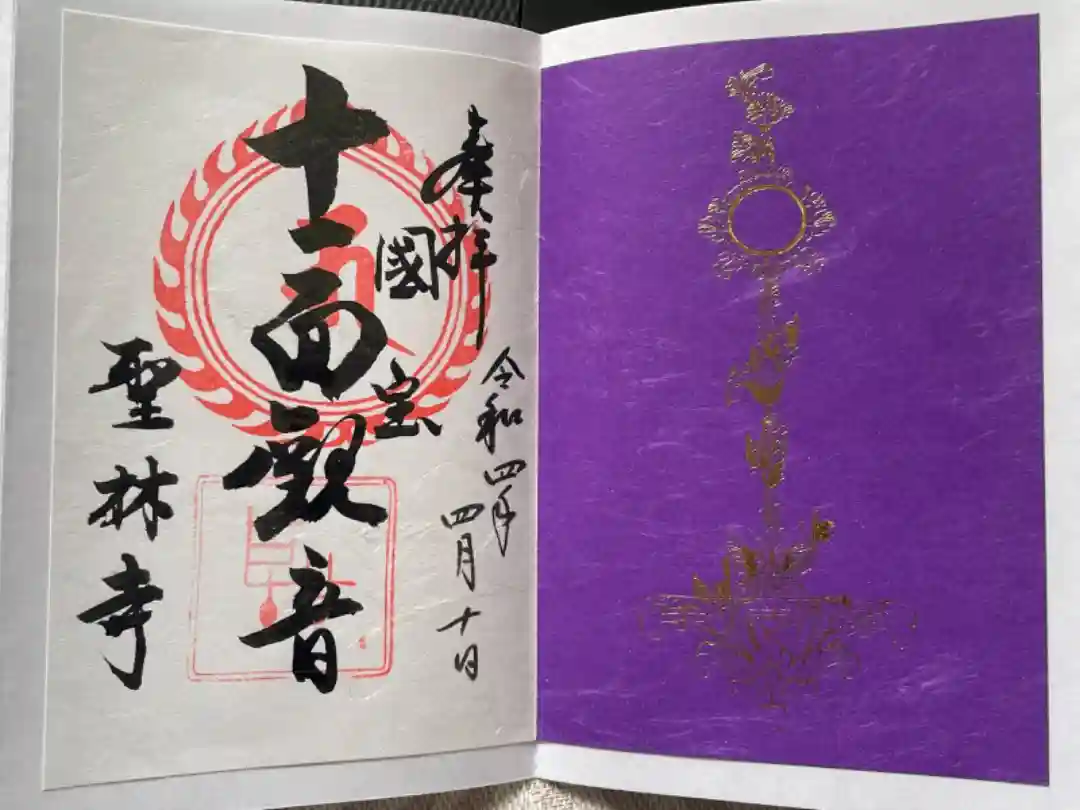 奉拝
令和四年
四月十日
國宝
十一面観音
聖林寺